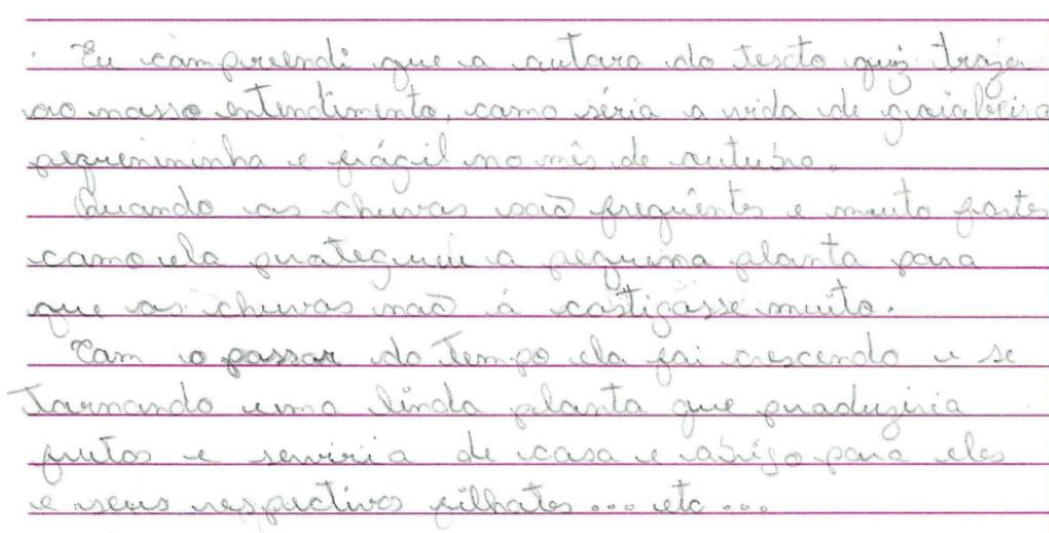 . Eu compreendi que a autora do texto quiz trazer
ao nosso entendimento, como séria a vida de goiabeira
pequenininha e frágil no mês de outubro.
Quando as chuvas são freqüentes e muito fortes
como ela protegeu a pequena planta para
que as chuvas não á castigásse muito.
Com o passar do tempo ela foi crescendo e se
tornando uma linda planta que produziria
frutos e serviria de casa e abrigo para eles
e seus respectivos filhotes... etc...